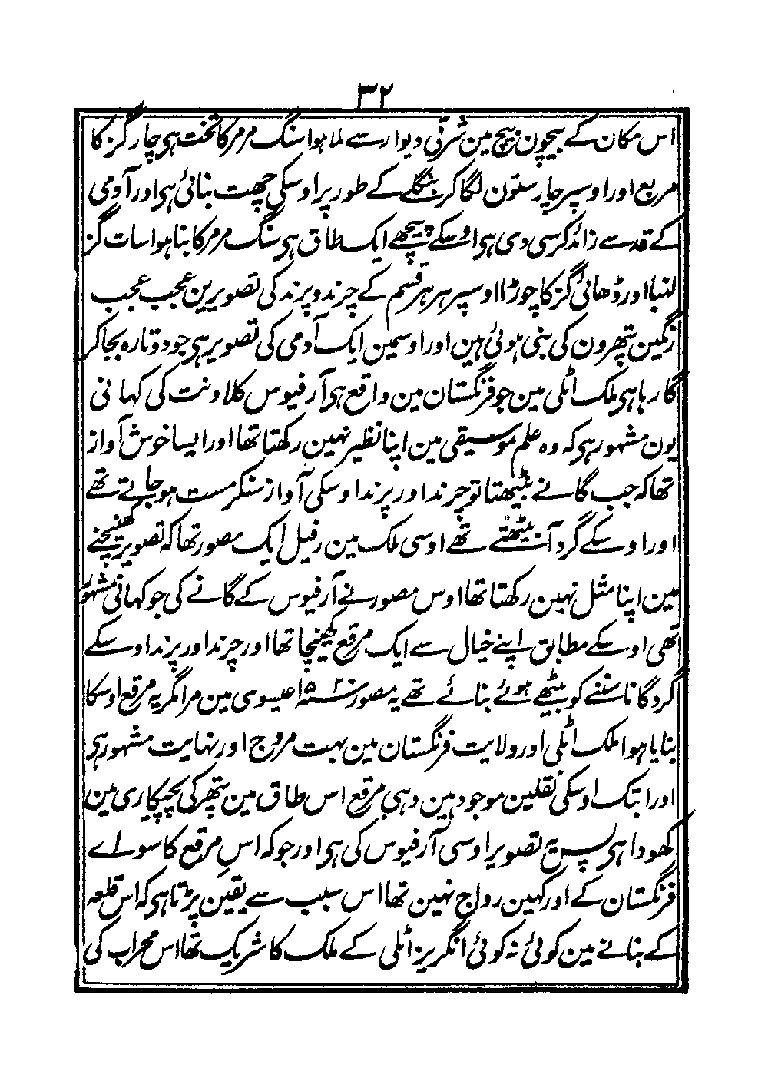 ۳۲
اس مکان کے بیچون بیچ مین شرقی دیوار سے لما ہوا سنگ مرمر کا تخت ہی چار گز کا
مربع اور اوسپر چار ستون لگا کر بنگلے کے طور پر اوسکی چھت بنائی ہی اور آدمی
کے قد سے زائد کرسی دی ہی اوسکے پیچھے ایک طاق ہی سنگ مرمر کا بنا ہوا سات گز
لنبا اور ڈھائی گز کا چوڑا اوسپر ہر ہر قسم کے چرند و پرند کی تصویرین عجب عجب
رنگین پتھرون کی بنی ہوئی ہین اور اوسمین ایک آدمی کی تصویر ہی جو دوتارہ بجا کر
گا رہا ہی ملک اٹلی مین جو فرنگستان مین واقع ہی آرفیوس کلاونت کی کہانی
یون مشہور ہی کہ وہ علم موسیقی مین اپنا نظیر نہین رکھتا تھا اور ایسا خوش آواز
تھا کہ جب گانے بیٹھتا تو چرند اور پرند اوسکی آواز سنکر مست ہو جاتے تھے
اور اوسکے گرد آ بیٹھتے تھے اوسی ملک مین رفیل ایک مصور تھا کہ تصویر کھینچنے
مین اپنا مثل نہین رکھتا تھا اوس مصور نے آرفیوس کے گانے کی جو کہانی مشہور
تھی اوسکے مطابق اپنے خیال سے ایک مرقع کھینچا تھا اور چرند اور پرند اوسکے
گرد گانا سننے کو بیٹھے ہوئے بنائے تھے یہ مصور سنہ ۱۵۲۰ عیسوی مین مرا مگر یہ مرقع اوسکا
بنایا ہوا ملک اٹلی اور ولایت فرنگستان مین بہت مروج اور نہایت مشہور ہی
اور ابتک اوسکی نقلین موجود ہین وہی مرقع اس طاق مین پتھر کی پچیکاری مین
کھودا ہی پس یہ تصویر اوسی آرفیوس کی ہی اور جو کہ اس مرقع کا سواے
فرنگستان کے اور کہین رواج نہین تھا اس سبب سے یقین پڑتا ہی کہ اس قلعہ
کے بنانے مین کوئی نہ کوئی انگریز اٹلی کے ملک کا شریک تھا اس محراب کی